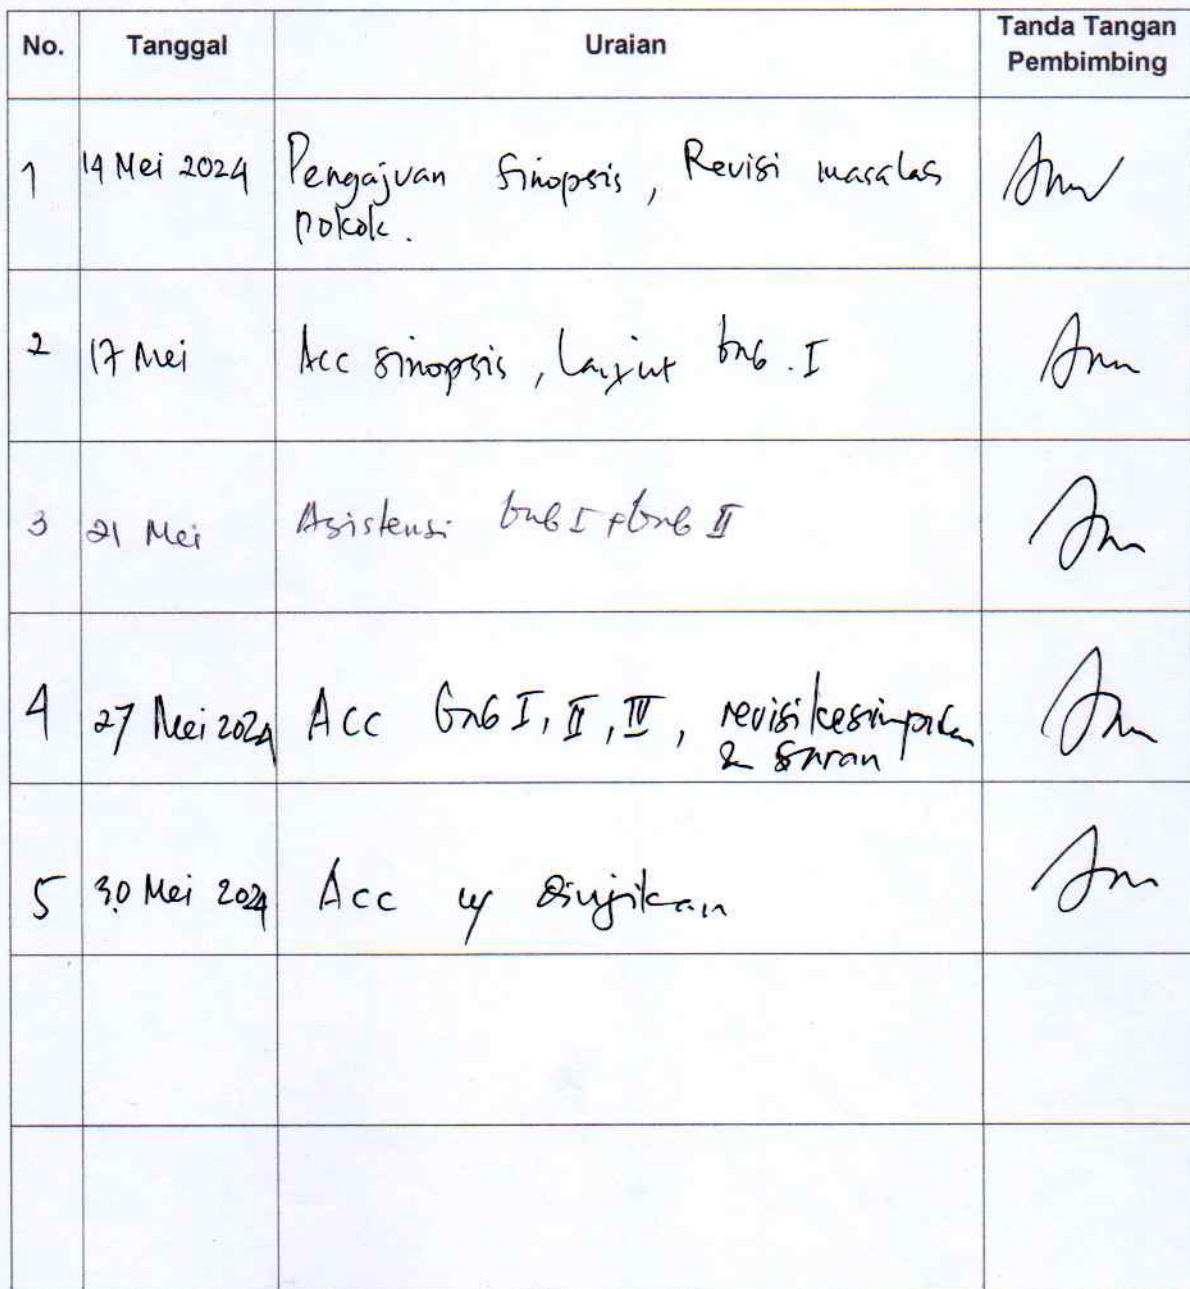 No. Tanggal Uraian Tanda Tangan Pembimbing
1 14 Mei 2024 Pengajuan Sinopsis, Revisi masalah
pokok.
2 17 Mei Acc sinopsis, Lanjut bab. I
3 21 Mei Asistensi bab I + bab II
4 27 Mei 2024 Acc bab I, II, IV, revisi kesimpulan
& saran
5 30 Mei 2024 Acc diujikan